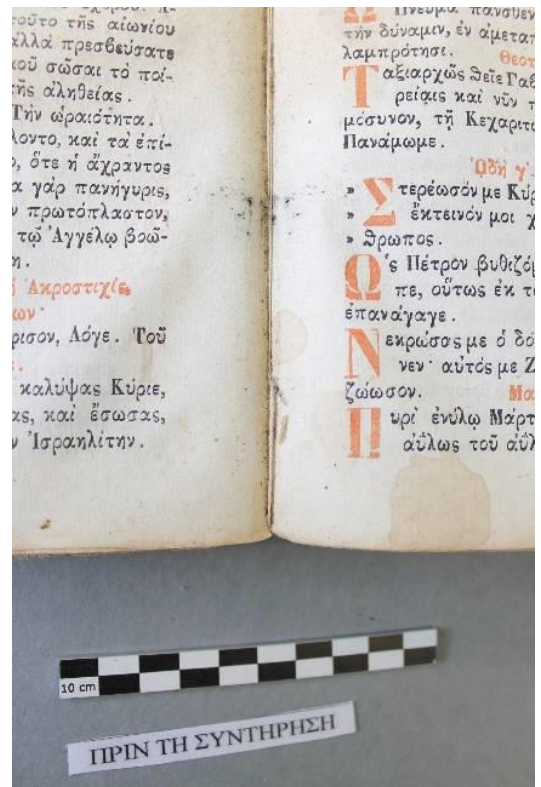 τοῦτο τῆς αἰωνίου
ἀλλὰ πρεσβεύσατε
σῶσαι τὸ ποί-
τῆς ἀληθείας.
Τὴν ὡραιότητα.
λοντο, καὶ τὰ ἐπί-
ὅτε ἡ ἄχραντος
γὰρ πανήγυρις,
πρωτόπλαστον,
τῷ Ἀγγέλῳ βοῶ-
Ἀκροστιχίς,
Λόγε. Τοῦ
καλύψας Κύριε,
καὶ ἔσωσας,
Ἰσραηλίτην.
Πνεῦμα πανσθεν
τὴν δύναμιν, ἐν ἀμεταπ
λαμπρότησι. Θεοτ
Ταξιαρχῶς θεῖε Γαβ
ρείαις καὶ νῦν π
μόσυνον, τῇ Κεχαριτω
Πανάμωμε.
ᾨδὴ γ΄.
» Στερέωσόν με Κύρ
» ἔκτεινόν μοι χ
» θρωπος.
Ὡς Πέτρον βυθιζόμ
πε, οὕτως ἐκ τ
ἐπανάγαγε.
Νεκρώσας με ὁ δό
νεν· αὐτός με Ζ
ζώωσον. Μα
Πυρὶ ἐνύλῳ Μάρτ
αΰλως τοῦ αΰλ
10 cm
ΠΡΙΝ ΤΗ ΣΥΝΤΗΡΗΣΗ